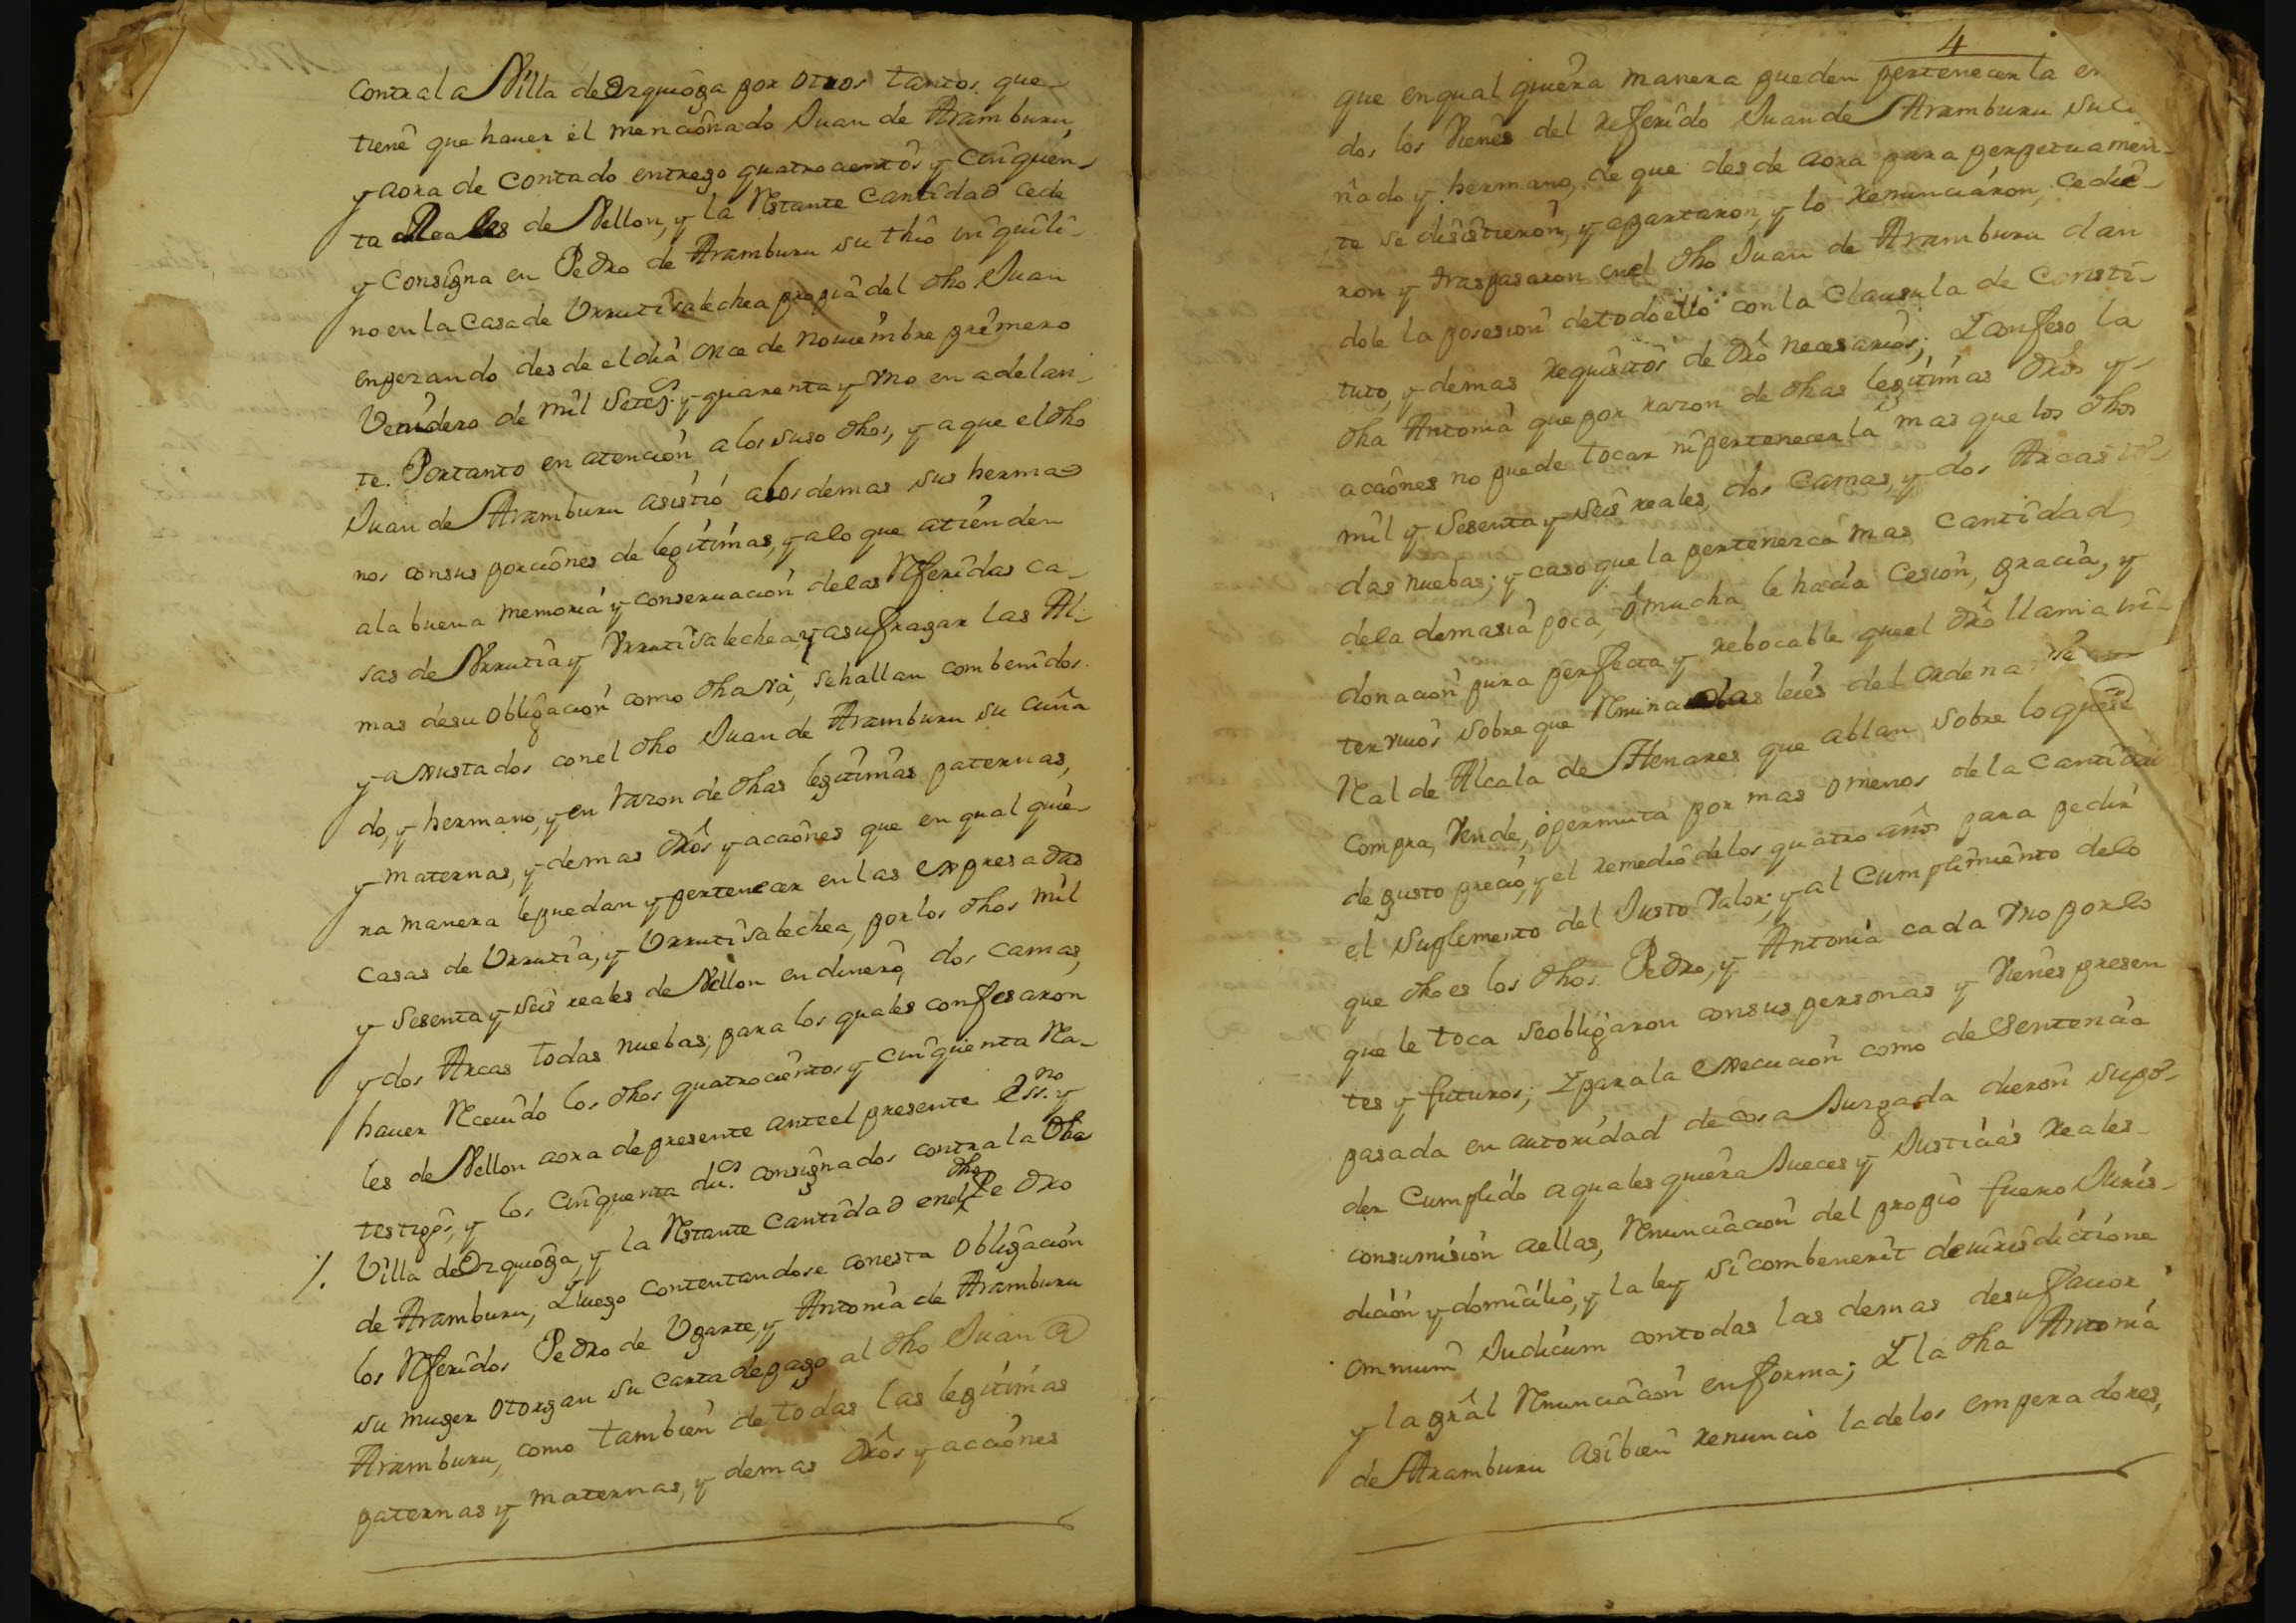 contra la Villa de Orquoga por otros tantos que
tiene que hauer el mencionado Juan de Aramburu,
y aora de contado entrego quatrocientos y cinquen
ta Reales de Vellon, y la Restante cantidad cede
y consigna en Pedro de Aramburu su thio inquili-
no en la Casa de Urrutisalechea propia del dho Juan
enpezando desde el dia once de Nouiembre primero
Venidero de mil setecs. y quarenta y Vno en adelan-
te. Portanto en atencion a los suso dhos, y a que el dho
Juan de Aramburu asistio a los demas sus herma
nos con sus porciones de legitimas, y a lo que atienden
a la buena memoria y conseruacion de las Referidas ca-
sas de Vrrutia y Vrrutisalechea, y a sufragar las Al-
mas de su obligacion como dha Va, se hallan combenidos
y axustados con el dho Juan de Aramburu su cuña
do, y hermano, y en razon de dhas legitimas paternas,
y maternas, y demas dros y acciones que en qual quie-
ra manera le puedan y pertenecer en las expresadas
casas de Urrutia, y Urrutisalechea, por los dhos mil
y sesenta y seis reales de Vellon en dinero, dos camas,
y dos Arcas todas nuebas; para los quales confesaron
hauer Receuido los dhos quatrocientos y cinquenta Rea-
les de Vellon aora de presente ante el presente Essno. y
testigos, y los cinquenta ducs. consignados contra la dha
/. Villa de Orquoga, y la Restante cantidad en el dho Pedro
de Aramburu; Y luego contentandose con esta obligacion
los Referidos Pedro de Ugarte, y Antonia de Aramburu
su muger otorgan su carta de pago al dho Juan de
Aramburu, como tambien de todas las legitimas
paternas y maternas, y demas dros y acciones
4
que en qual quiera manera pueden pertenecerla en
dos los Vienes del referido Juan de Aramburu su cu
ñado y hermano, de que desde aora para perpetuamen-
te se desistieron, y apartaron, y lo renunciaron, cedie-
ron y traspasaron en el dho Juan de Aramburu dan
dole la posesion de todo ello con la clausula de consti-
tuto, y demas requisitos de dro necesarios; Y confeso la
dha Antonia que por razon de dhas legitimas dros y
acciones no puede tocar ni pertenecerla mas que los dhos
mil y sesenta y seis reales, dos camas, y dos Arcas to
das nuebas; y caso que la pertenezca mas cantidad,
de la demasia poca, o mucha le hacia cesion, gracia, y
donacion pura perfecta y rebocable que el dro llama in-
ter viuos sobre que Renuncia las leies del ordena
Real de Alcala de Henares que ablan sobre lo que se
compra, Vende, o permuta por mas o menos de la cantidad
de gusto precio, y el remedio de los quatro años para pedir
el suplemento del Justo Valor; y al cumplimiento de lo
que dho es los dhos Pedro, y Antonia cada Vno por lo
que le toca se obligaron con sus personas y Vienes presen
tes y futuros; Y para la execucion como de sentencia
pasada en autoridad de cosa Juzgada dieron su po-
der cumplido a quales quiera Jueces y Justicias reales
consumision a ellas, Renunciacion del propio fuero Juris-
dicion y domicilio, y la ley si combenerit de iurisdictione
ommium Judicum con todas las demas de su fauor
y la gral Renunciacion en forma; Y la dha Antonia
de Aramburu asi bien renuncio la de los emperadores,